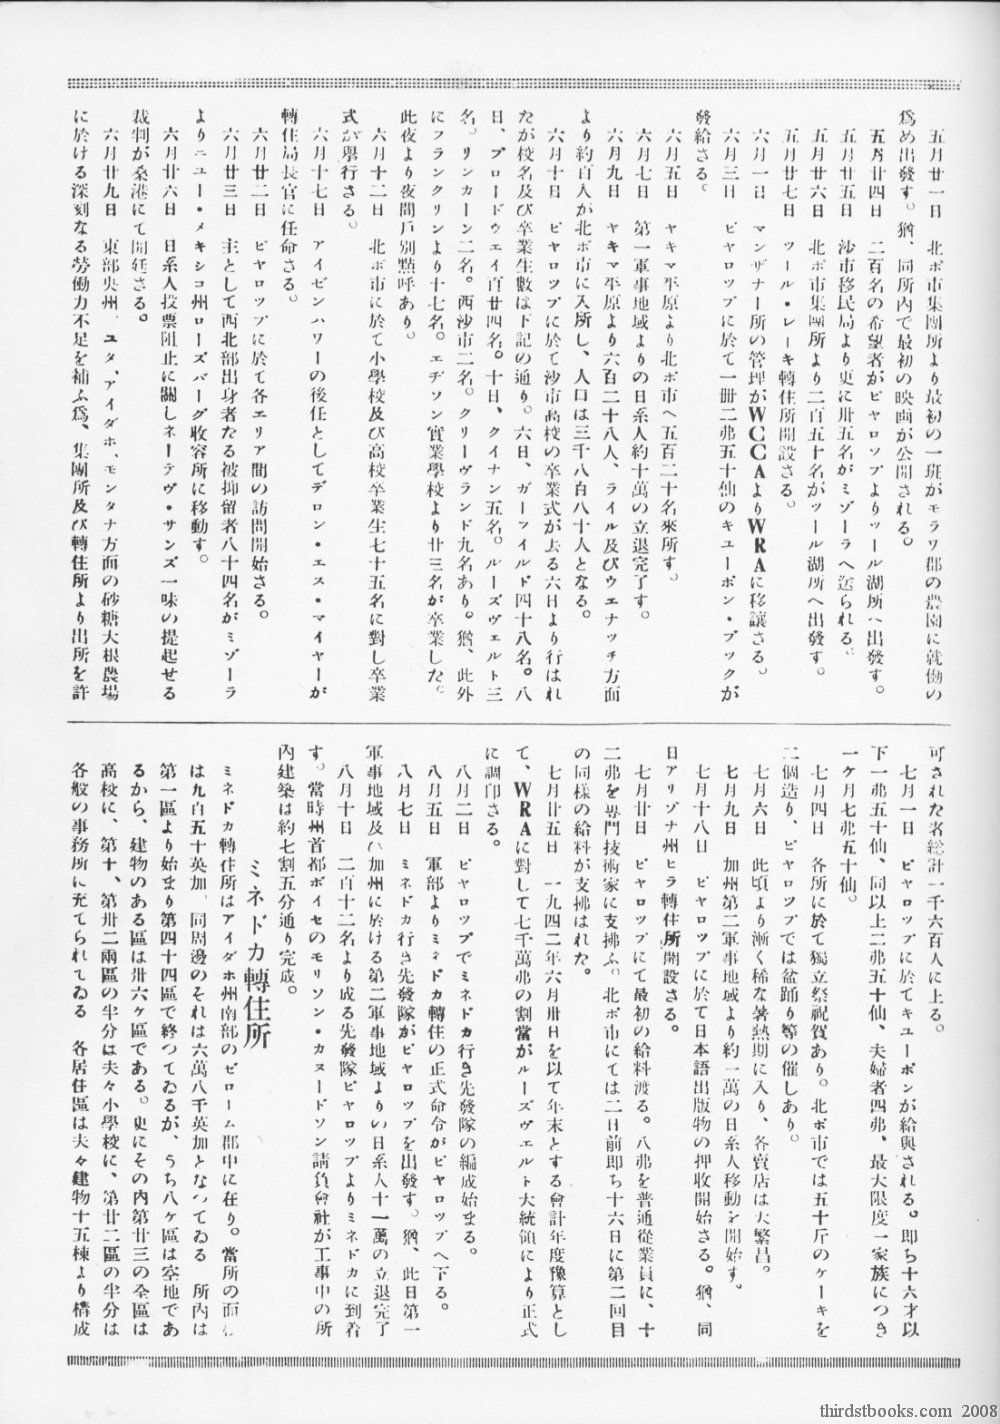 五月廿一日　北ポ市集團所より最初の一班がモラワ郡の農園に就働の
爲め出發す。猶、同所内で最初の映画が公開される。
五月廿四日　二百名の希望者がピヤロツプよりツール湖所へ出發す。
五月廿五日　沙市移民局より更に卅五名がミゾーラへ送られる。
五月廿六日　北ポ市集團所より二百五十名がツール湖所へ出發す。
五月廿七日　ツール・レーキ轉住所開設さる。
六月一日　マンザナー所の管理がWCCAよりWRAに移讓さる。
六月三日　ピヤロツプに於て一冊二弗五十仙のキューポン・ブックが
發給さる。
六月五日　ヤキマ平原より北ポ市へ五百二十名來所す。
六月七日　第一軍事地域よりの日系人約十萬の立退完了す。
六月九日　ヤキマ平原より六百二十八人、ライル及びウエナッチ方面
より約百人が北ポ市に入所し、人口は三千八百八十人となる。
六月十日　ピヤロツプに於て沙市高校の卒業式が去る六日より行はれ
たが校名及び卒業生數は下記の通り。六日、ガーフイルド四十八名。八
日、ブロードウエイ百廿四名。十日、クイナン五名。ルーズヴェルト三
名。リンカーン二名。西沙市二名。クリーヴランド九名あり。猶、此外
にフランクリンより十七名。エヂソン實業學校より廿三名が卒業した。
此夜より夜間戸別點呼あり。
六月十二日　北ポ市に於て小學校及び高校卒業生七十五名に對し卒業
式が舉行さる。
六月十七日　アイゼンハワーの後任としてデロン・エス・マイヤーが
轉住局長官に任命さる。
六月廿二日　ピヤロツプに於て各エリア間の訪問開始さる。
六月廿三日　主として西北部出身者たる被抑留者八十四名がミゾーラ
よりニユー・メキシコ州ローズバーグ收容所に移動す。
六月廿六日　日系人投票阻止に關しネーテヴ・サンズ一味の提起せる
裁判が桑港にて開廷さる。
六月廿九日　東部央州、ユタ、アイダホ、モンタナ方面の砂糖大根農場
に於ける深刻なる勞働力不足を補ふ爲、集團所及び轉住所より出所を許
可された者総計一千六百人に上る。
七月一日　ピヤロツプに於てキユーポンが給與される。即ち十六才以
下一弗五十仙、同以上二弗五十仙、夫婦者四弗、最大限度一家族につき
一ケ月七弗五十仙。
七月四日　各所に於て獨立祭祝賀あり。北ポ市では五十斤のケーキを
二個造り、ピヤロツプでは盆踊り等の催しあり。
七月六日　此頃より漸く稀な暑熱期に入り、各賣店は大繁昌。
七月九日　加州第二軍事地域より約一萬の日系人移動を開始す。
七月十八日　ピヤロツプに於て日本語出版物の押收開始さる。猶、同
日アリゾナ州ヒラ轉住所開設さる。
七月廿日　ピヤロツプにて最初の給料渡る。八弗を普通從業員に、十
二弗を專門技術家に支拂ふ。北ポ市にては二日前即ち十六日に第二回目
の同樣の給料が支拂はれた。
七月廿五日　一九四二年六月卅日を以て年末とする會計年度豫算とし
て、WRAに對して七千萬弗の割當がルーズヴェルト大統領により正式
に調印さる。
八月二日　ピヤロツプでミネドカ行き先發隊の編成始まる。
八月五日　軍部よりミネドカ轉住の正式命令がピヤロツプへ下る。
八月七日　ミネドカ行き先發隊がピヤロツプを出發す。猶、此日第一
軍事地域及び加州に於ける第二軍事地域よりの日系人十一萬の立退完了
八月十日　二百十二名より成る先發隊ピヤロツプよりミネドカに到着
す。當時州首都ボイセのモリソン・カヌードソン請負會社が工事中の所
内建築は約七割五分通り完成。
ミネドカ轉住所
ミネドカ轉住所はアイダホ州南部のゼローム郡中に在り。當所の面積
は九百五十英加、同周邊のそれは六萬八千英加となつてゐる　所内は
第一區より始まり第四十四區で終つてゐるが、うち八ケ區は空地であ
るから、建物のある區は卅六ケ區である。更にその内第廿三の全區は
高校に、第十、第卅二兩區の半分は夫々小學校に、第廿二區の半分は
各般の事務所に充てられてゐる　各居住區は夫々建物十五棟より構成
thirdstbooks.com 2008